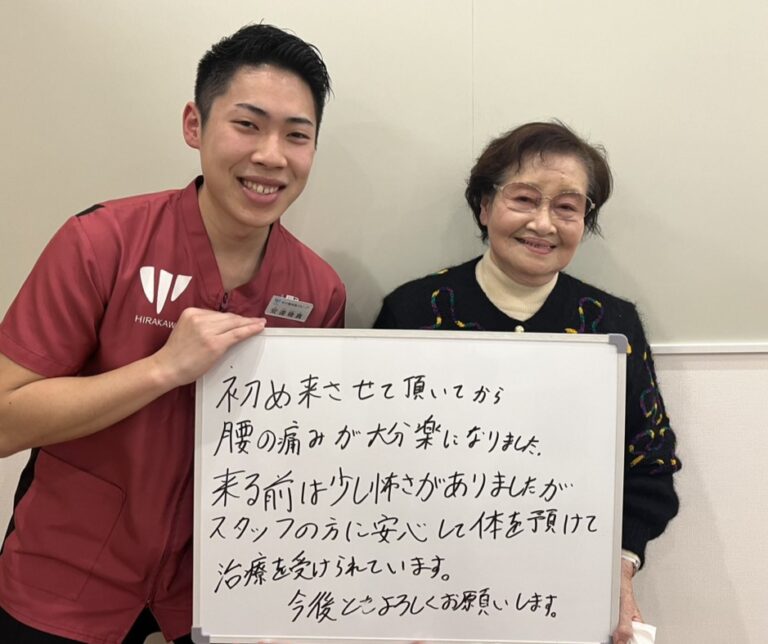 HIRAKAW
初め来させて頂いてから
腰の痛みが大分楽になりました.
来る前は少し怖さがありましたが
スタッフの方に安心して体を預けて
治療を受けられています。
今後ともよろしくお願いします。